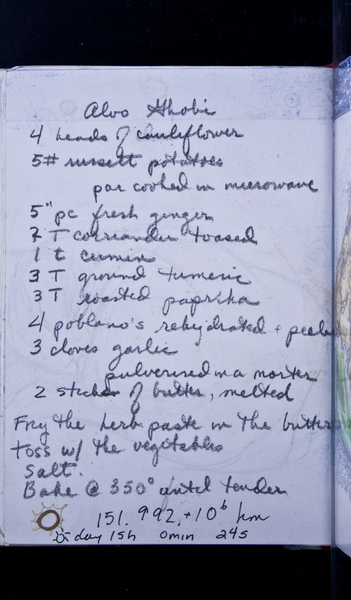 Aloo Ghobi
4 heads of cauliflower
5# russett potatoes
par cooked in microwave
5" pc fresh ginger
7 T corriander toased
1 t cumin
3 T ground tumeric
3 T roasted paprika
4 poblano's rehydrated + peele
3 cloves garlic
pulverised in a morter
2 sticks of butter, melted
Fry the herb paste in the butter
toss w/ the vegetables
Salt.
Bake @ 350° until tender
151.992 * 10⁶ km
day 15h 0min 24s